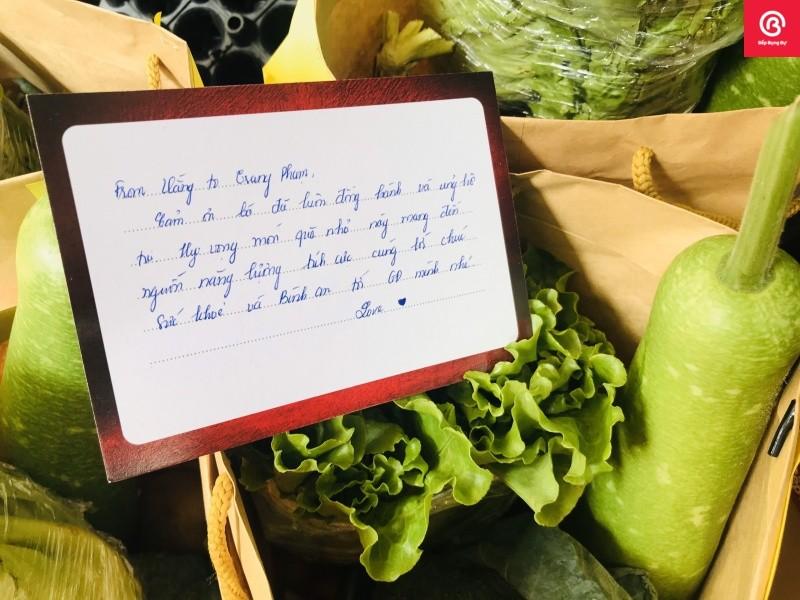 Bếp Bụng Bự
From Hằng to Trang Phạm,
Cảm ơn bồ đã luôn đồng hành và ủng hộ
tu. Hy vọng món quà nhỏ này mang đến
nguồn năng lượng tích cực cùng lời chúc
Sức khoẻ và Bình an tới GĐ mình nhé
Love